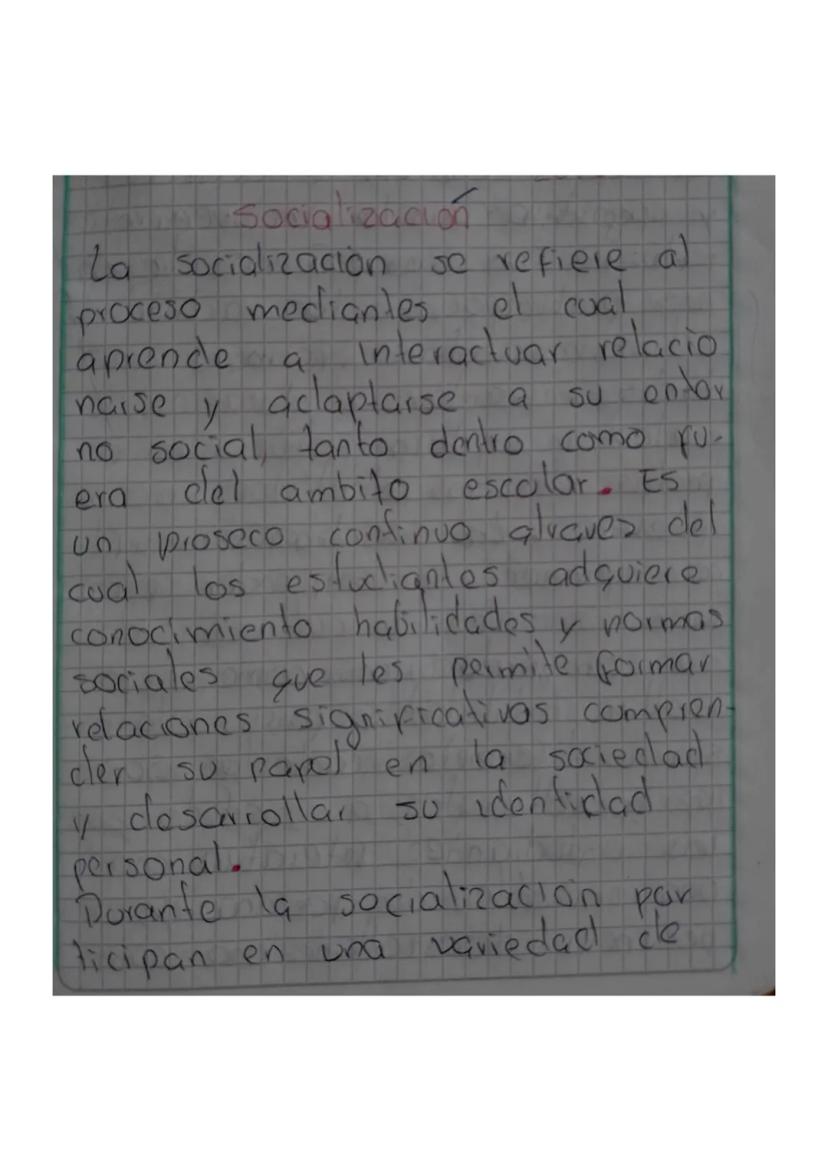 socialización
La socialización se refiere al
proceso mediantes el cual
aprende a interactuar relacio
narse y adaptarse a su entor
no social, tanto dentro como fu-
era del ambito escolar. Es
un proseco continuo atravez del
cual los estudiantes adquiere
conocimiento habilidades y normas
sociales que les permite formar
relaciones significativas compren-
der su papel en la sociedad
y desarrollar su identidad
personal.
Durante la socialización par
ticipan en una variedad de